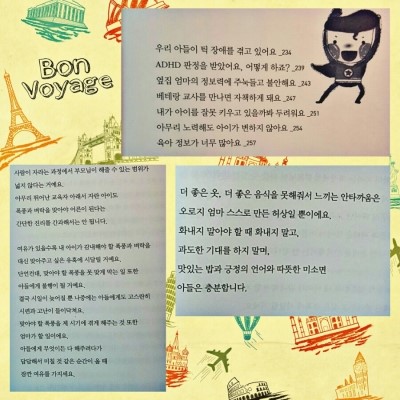 Bon
Voyage
우리 아들이 틱 장애를 겪고 있어요 _234
ADHD 판정을 받았어요, 어떻게 하죠? _239
옆집 엄마의 정보력에 주눅들고 불안해요 _243
베테랑 교사를 만나면 자책하게 돼요 _247
내가 아이를 잘못 키우고 있을까봐 두려워요 _251
아무리 노력해도 아이가 변하지 않아요 _254
육아 정보가 너무 많아요 _257
사람이 자라는 과정에서 부모님이 해줄 수 있는 범위가
넓지 않다는 거예요.
아무리 뛰어난 교육자 아래서 자란 아이도
폭풍과 벼락을 맞아야 어른이 된다는
간단한 진리를 간과해서는 안 됩니다.
여유가 있을수록 내 아이가 감내해야 할 폭풍과 벼락을
대신 맞아주고 싶은 유혹에 시달릴 거예요.
단언컨대, 맞아야 할 폭풍을 못 맞게 막는 일 또한
아들에게 불행이 될 거예요.
결국 시일이 늦어질 뿐 나중에는 아들에게도 고스란히
시련과 고난이 들이닥쳐요.
맞아야 할 폭풍을 제 시기에 겪게 해주는 것 또한
엄마가 할 일이에요.
아들에게 무엇이든 다 해주려다가
답답해서 미칠 것 같은 순간이 올 때
잠깐 여유를 가지세요.
더 좋은 옷, 더 좋은 음식을 못해줘서 느끼는 안타까움은
오로지 엄마 스스로 만든 허상일 뿐이에요.
화내지 말아야 할 때 화내지 말고,
과도한 기대를 하지 말며,
맛있는 밥과 긍정의 언어와 따뜻한 미소면
아들은 충분합니다.